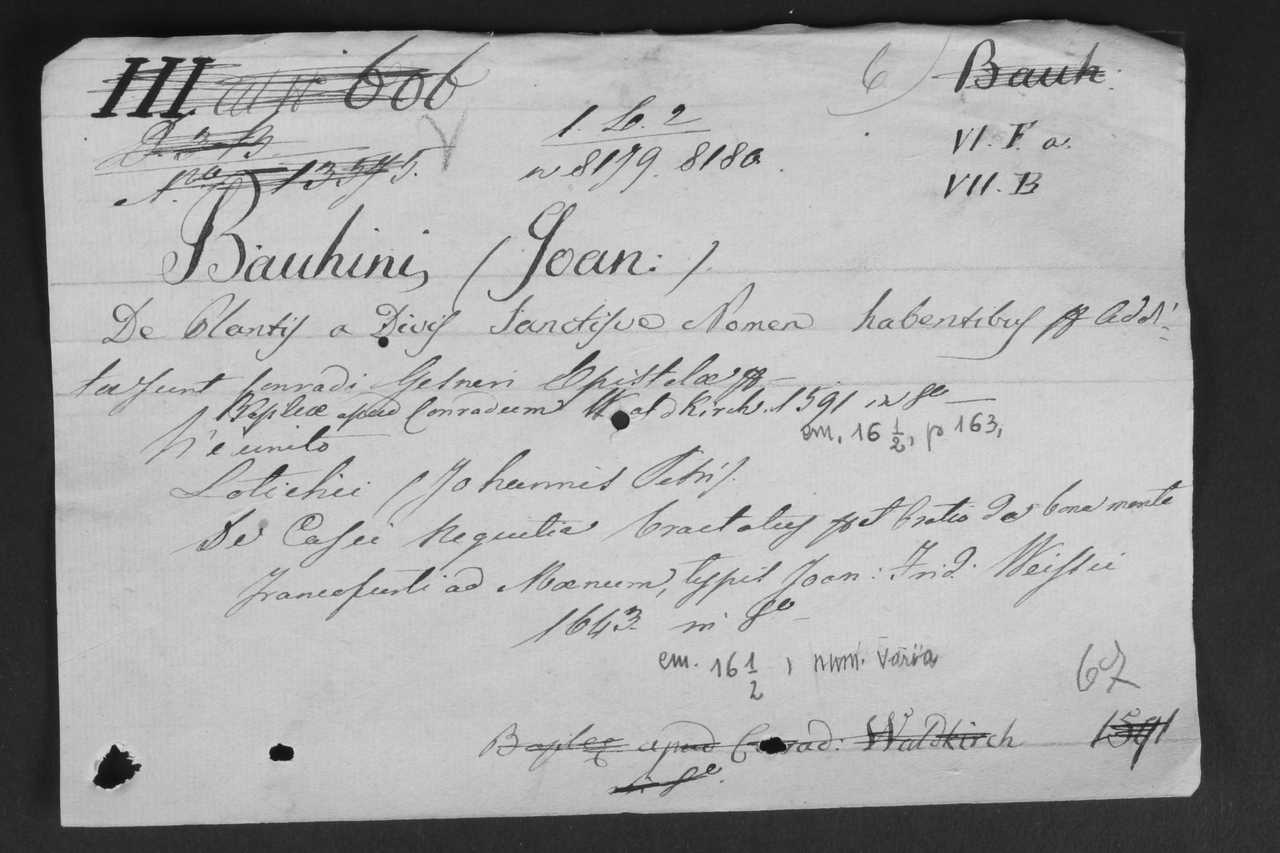 HI 606
6) Bauh.
1. L. 2
VI. F. a.
N.ro 13545.
n 8179. 8180.
VII. B
Bauhini, (Joan:).
De Plantis a Divis Sanctisve Nomen habentibus Addi-
tae sunt Conradi Gesneri Epistolae
Basileae apud Conradum Waldkirch. 1591 in 8o
em. 16 1/2, p 163,
V'è unito
Lotichii (Johannis Petri).
De Casei Nequitia Tractatus et Oratio de bona mente
Francofurti ad Moenum, typis Joan: Frid: Weissii
1643. in 8o
em. 16 1/2, num. varia
67
Basileae apud Conrad: Waldkirch 1591
in 8o.